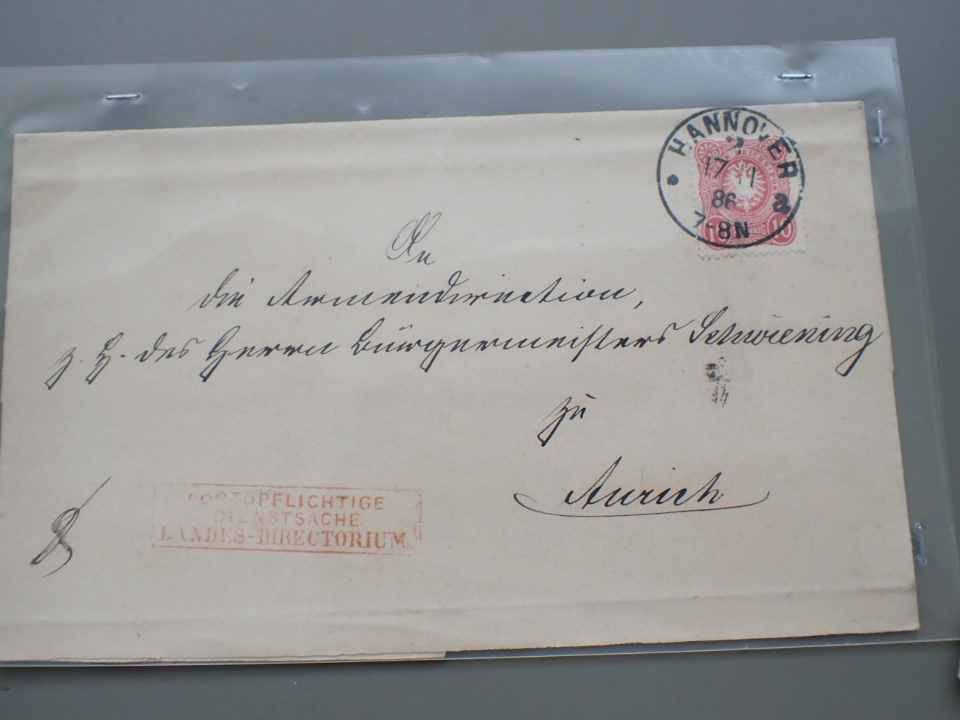 HANNOVER
17 11
86 a
7-8N
10 10
An
die Armendirection,
z. H. des Herrn Bürgermeisters Schwiening
zu
Aurich
PORTOPFLICHTIGE
DIENSTSACHE
LANDES-DIRECTORIUM.